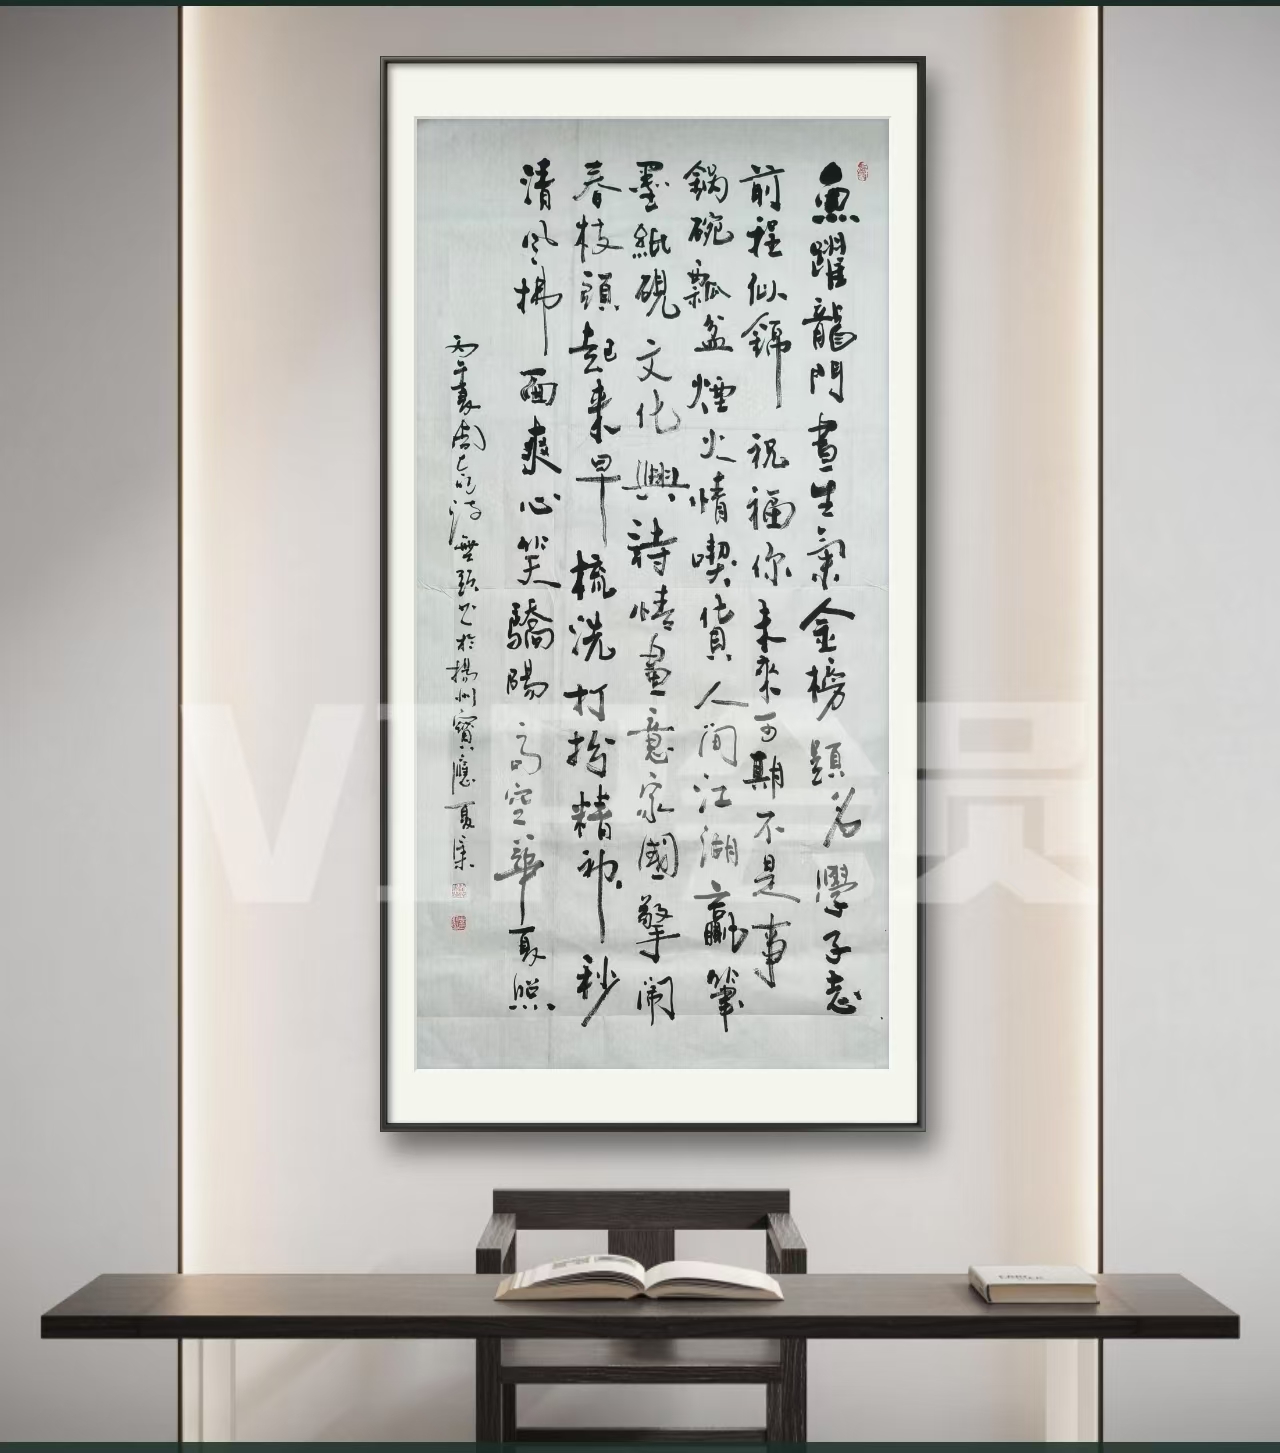 魚躍龍門畫生氣金榜題名學子志
前程似錦祝福你未來可期不是事
鍋碗瓢盆煙火情喫貨人间江湖贏筆
墨紙硯文化興詩情畫意家國擎鬧
春枝頭起來早梳洗打扮精神秒
清风拂面爽心笑驕陽高空華夏照
丙午夏周 詩 於揚州寶應夏集
VIP会员